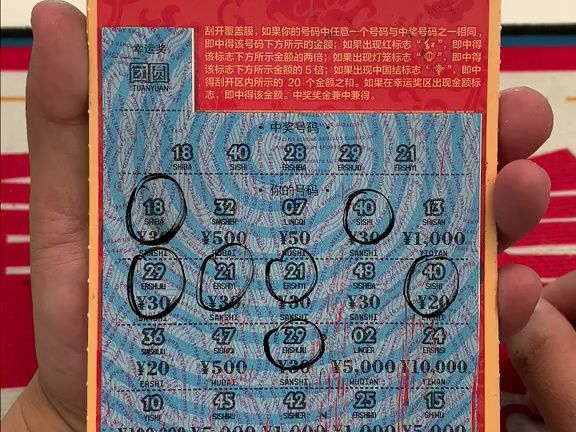 幸运奖
团圆
TUANYUAN
刮开覆盖膜,如果你的号码中任意一个号码与中奖号码之一相同,
即中得该号码下方所示的金额;如果出现红标志“ ”,即中得
该标志下方所示金额的两倍;如果出现灯笼标志“ ”,即中得
该标志下方所示金额的5倍;如果出现中国结标志“ ”,即中
得刮开区内所示的 20 个金额之和。如果在幸运奖区出现金额标
志,即中得该金额。中奖奖金兼中兼得。
中奖号码
18 40 28 29 21
SHIBA SISHI ERSHIBA ERSHIJIU ERSHIYI
你的号码
18 32 07 40 13
SHIBA SANSHIER LINGQI SISHI SHISAN
¥30 ¥500 ¥50 ¥30 ¥1,000
SANSHI WUBAI WUSHI SANSHI YIQIAN
29 21 21 48 40
ERSHIJIU ERSHIYI ERSHIYI SISHIBA SISHI
¥30 ¥30 ¥30 ¥30 ¥20
SANSHI SANSHI SANSHI SANSHI
36 47 29 02 24
SANSHILIU SISHIQI ERSHIJIU LINGER ERSHISI
¥20 ¥500 ¥30 ¥5,000 ¥10,000
ERSHI WUBAI SANSHI WUQIAN YIWAN
10 45 42 25 15
YISHI SISHIWU SISHIER ERSHIWU SHIWU